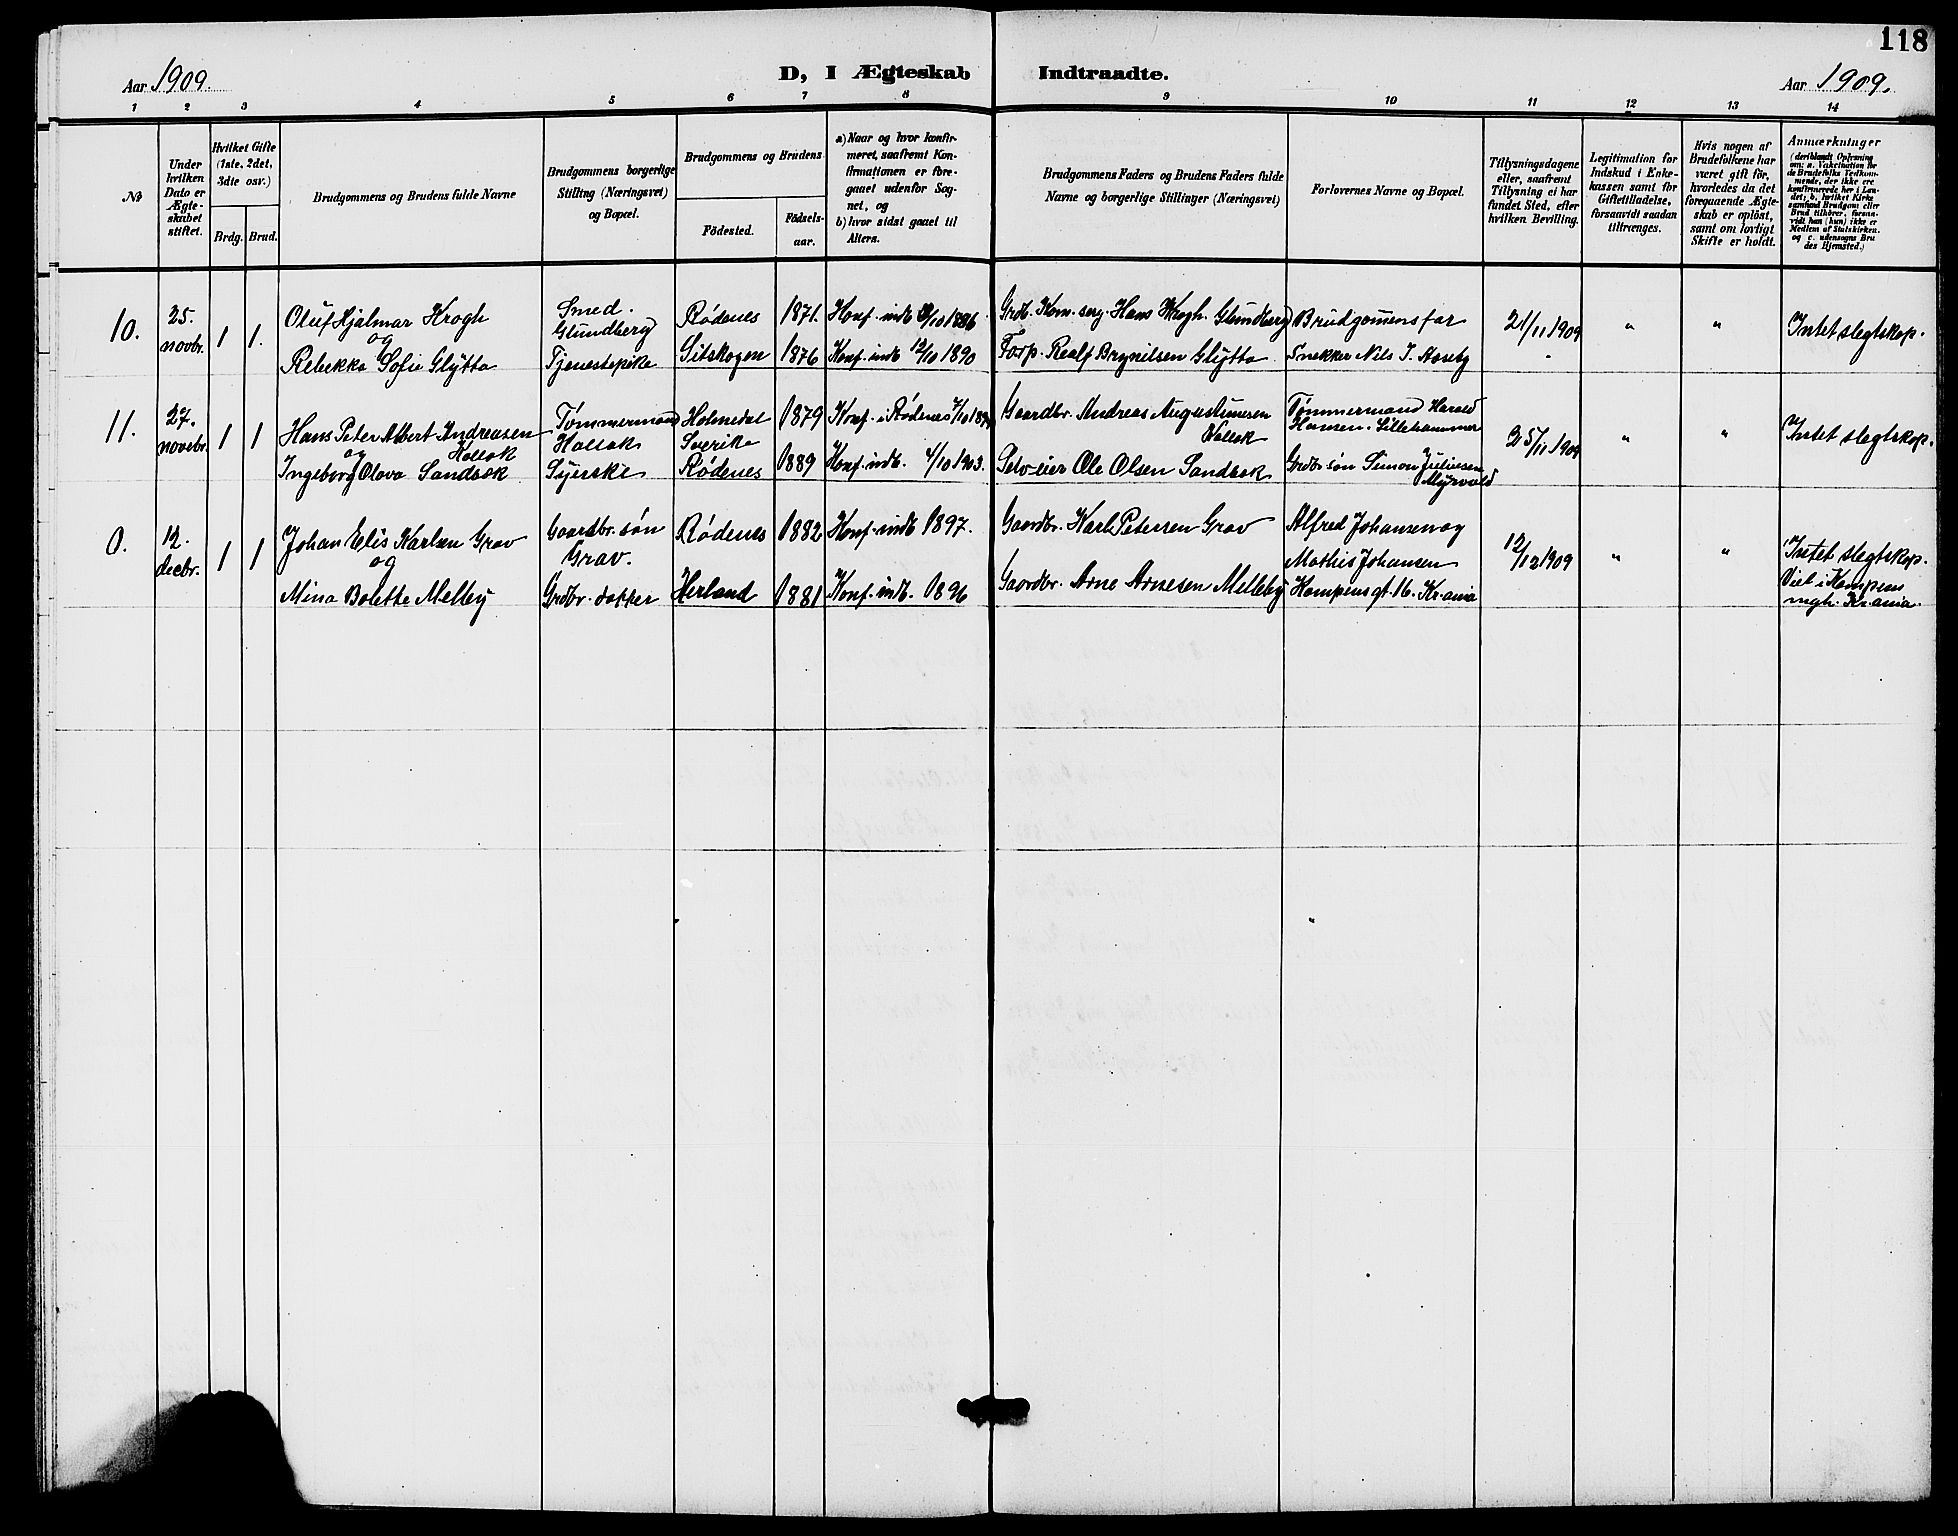 118
Aar 1909.
D, I Ægteskab Indtraadte.
Aar 1909.
1 2 3 4 5 6 7 8 9 10 11 12 13 14
№
Under hvilken Dato er Ægte-skabet stiftet.
Hvilket Gifte (1ste, 2det, 3dte osv.)
Brdg. Brud.
Brudgommens og Brudens fulde Navne
Brudgommens borgerlige Stilling (Næringsvei) og Bopæl.
Brudgommens og Brudens
Födested.
Födsels-aar.
a) Naar og hvor konfir-meret, saafremt Kon-firmationen er fore-gaaet udenfor Sog-net, og
b) hvor sidst gaaet til Alters.
Brudgommens Faders og Brudens Faders fulde Navne og borgerlige Stillinger (Næringsvei)
Forlovernes Navne og Bopæl.
Tillysningsdagene eller, saafremt Tillysning ei har fundet Sted, efter hvilken Bevilling.
Legitimation for Indskud i Enke-kassen samt for Giftetilladelse, forsaavidt saadan tiltrænges.
Hvis nogen af Brudefolkene har været gift för, hvorledes da det foregaaende Ægte-skab er oplöst, samt om lovligt Skifte er holdt.
Anmærkninger
(deriblandt Oplysning om: a. Vakcination for de Brudefolks Vedkom-mende, der ikke ere konfirmerede her i Lan-det; b. hvilket Kirke samfund Brudgom eller Brud tilhörer, forsaa-vidt han (hun) ikke er Medlem af Statskirken. og c. udensogns Bru des Hjemsted.)
10.
25. novbr.
1 1.
Oluf Hjalmar Krogh
og
Rebekka Sofie Glytta
Smed. Glundberg
Tjenestepike
Rødenes 1871.
Sitskogen 1876
Konf. indb /10 1886
Konf. indb 12/10 1890
Grdb. Kom. serg. Hans Krogh. Glundberg
Forp. Realf Brynilsen Glytta
Brudgomens far
Snekker Nils J. Aaseby
21/11 1909
"
"
"
Intet slegtskap.
11.
27. novebr.
1 1
Hans Peter Albert Andreasen Kollak
og
Ingeborg Olava Sandbæk
Tømmermand Kollak
Syerske
Holmedal Sverike 1879
Rødenes 1889
Konf. i Rødenes /10 189
Konf. indb. 4/10 1903.
Gaardbr. Andreas Augustinesen Kollak
Selveier Ole Olsen Sandbæk
Tømmermand Harald Hansen. Lillehammer
Grdbr søn Simon Juliusen Myrvold
25/11 1909
"
"
Intet slegtskap.
0.
12. decbr.
1 1
Johan Elis Karlsen Grav
og
Mina Bolette Melleby
Gaardbr. søn Grav.
Grdbr. datter
Rødenes 1882
Herland 1881
Konf. indb 1897.
Konf. indb. 1896
Gaardbr. Karl Petersen Grav
Gaardbr. Arne Arnesen Melleby
Alfred Johansen og
Mathis Johansen
Kampens gt. 16. Kr.ania
12/12 1909
"
"
Intet slegtskap.
Viet i Kampens
mgh. Kr.ania.